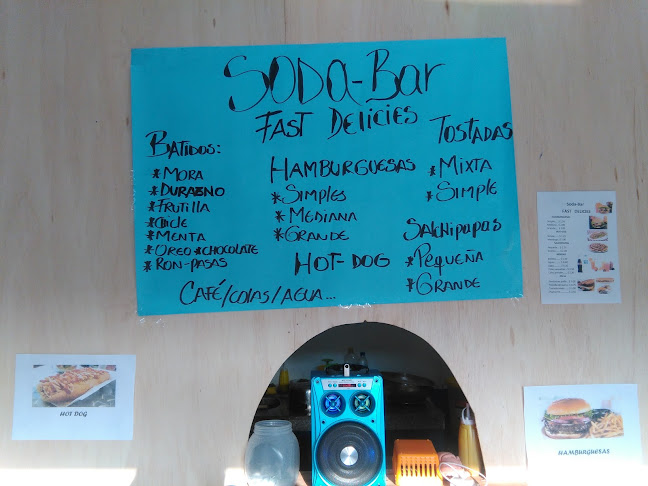 SODA-Bar
FAST DELICIES
BATIDOS:
*MORA
*DURAZNO
*FRUTILLA
*CHICLE
*MENTA
*OREO*CHOCOLATE
*RON-PASAS
HAMBURGUESAS
*SIMPLES
*MEDIANA
*GRANDE
HOT-DOG
TOSTADAS
*MIXTA
*SIMPLE
SAlchipapas
*PEQUEÑA
*GRANDE
CAFÉ/COLAS/AGUA...
Soda-Bar
HOT DOG
HAMBURGUESAS